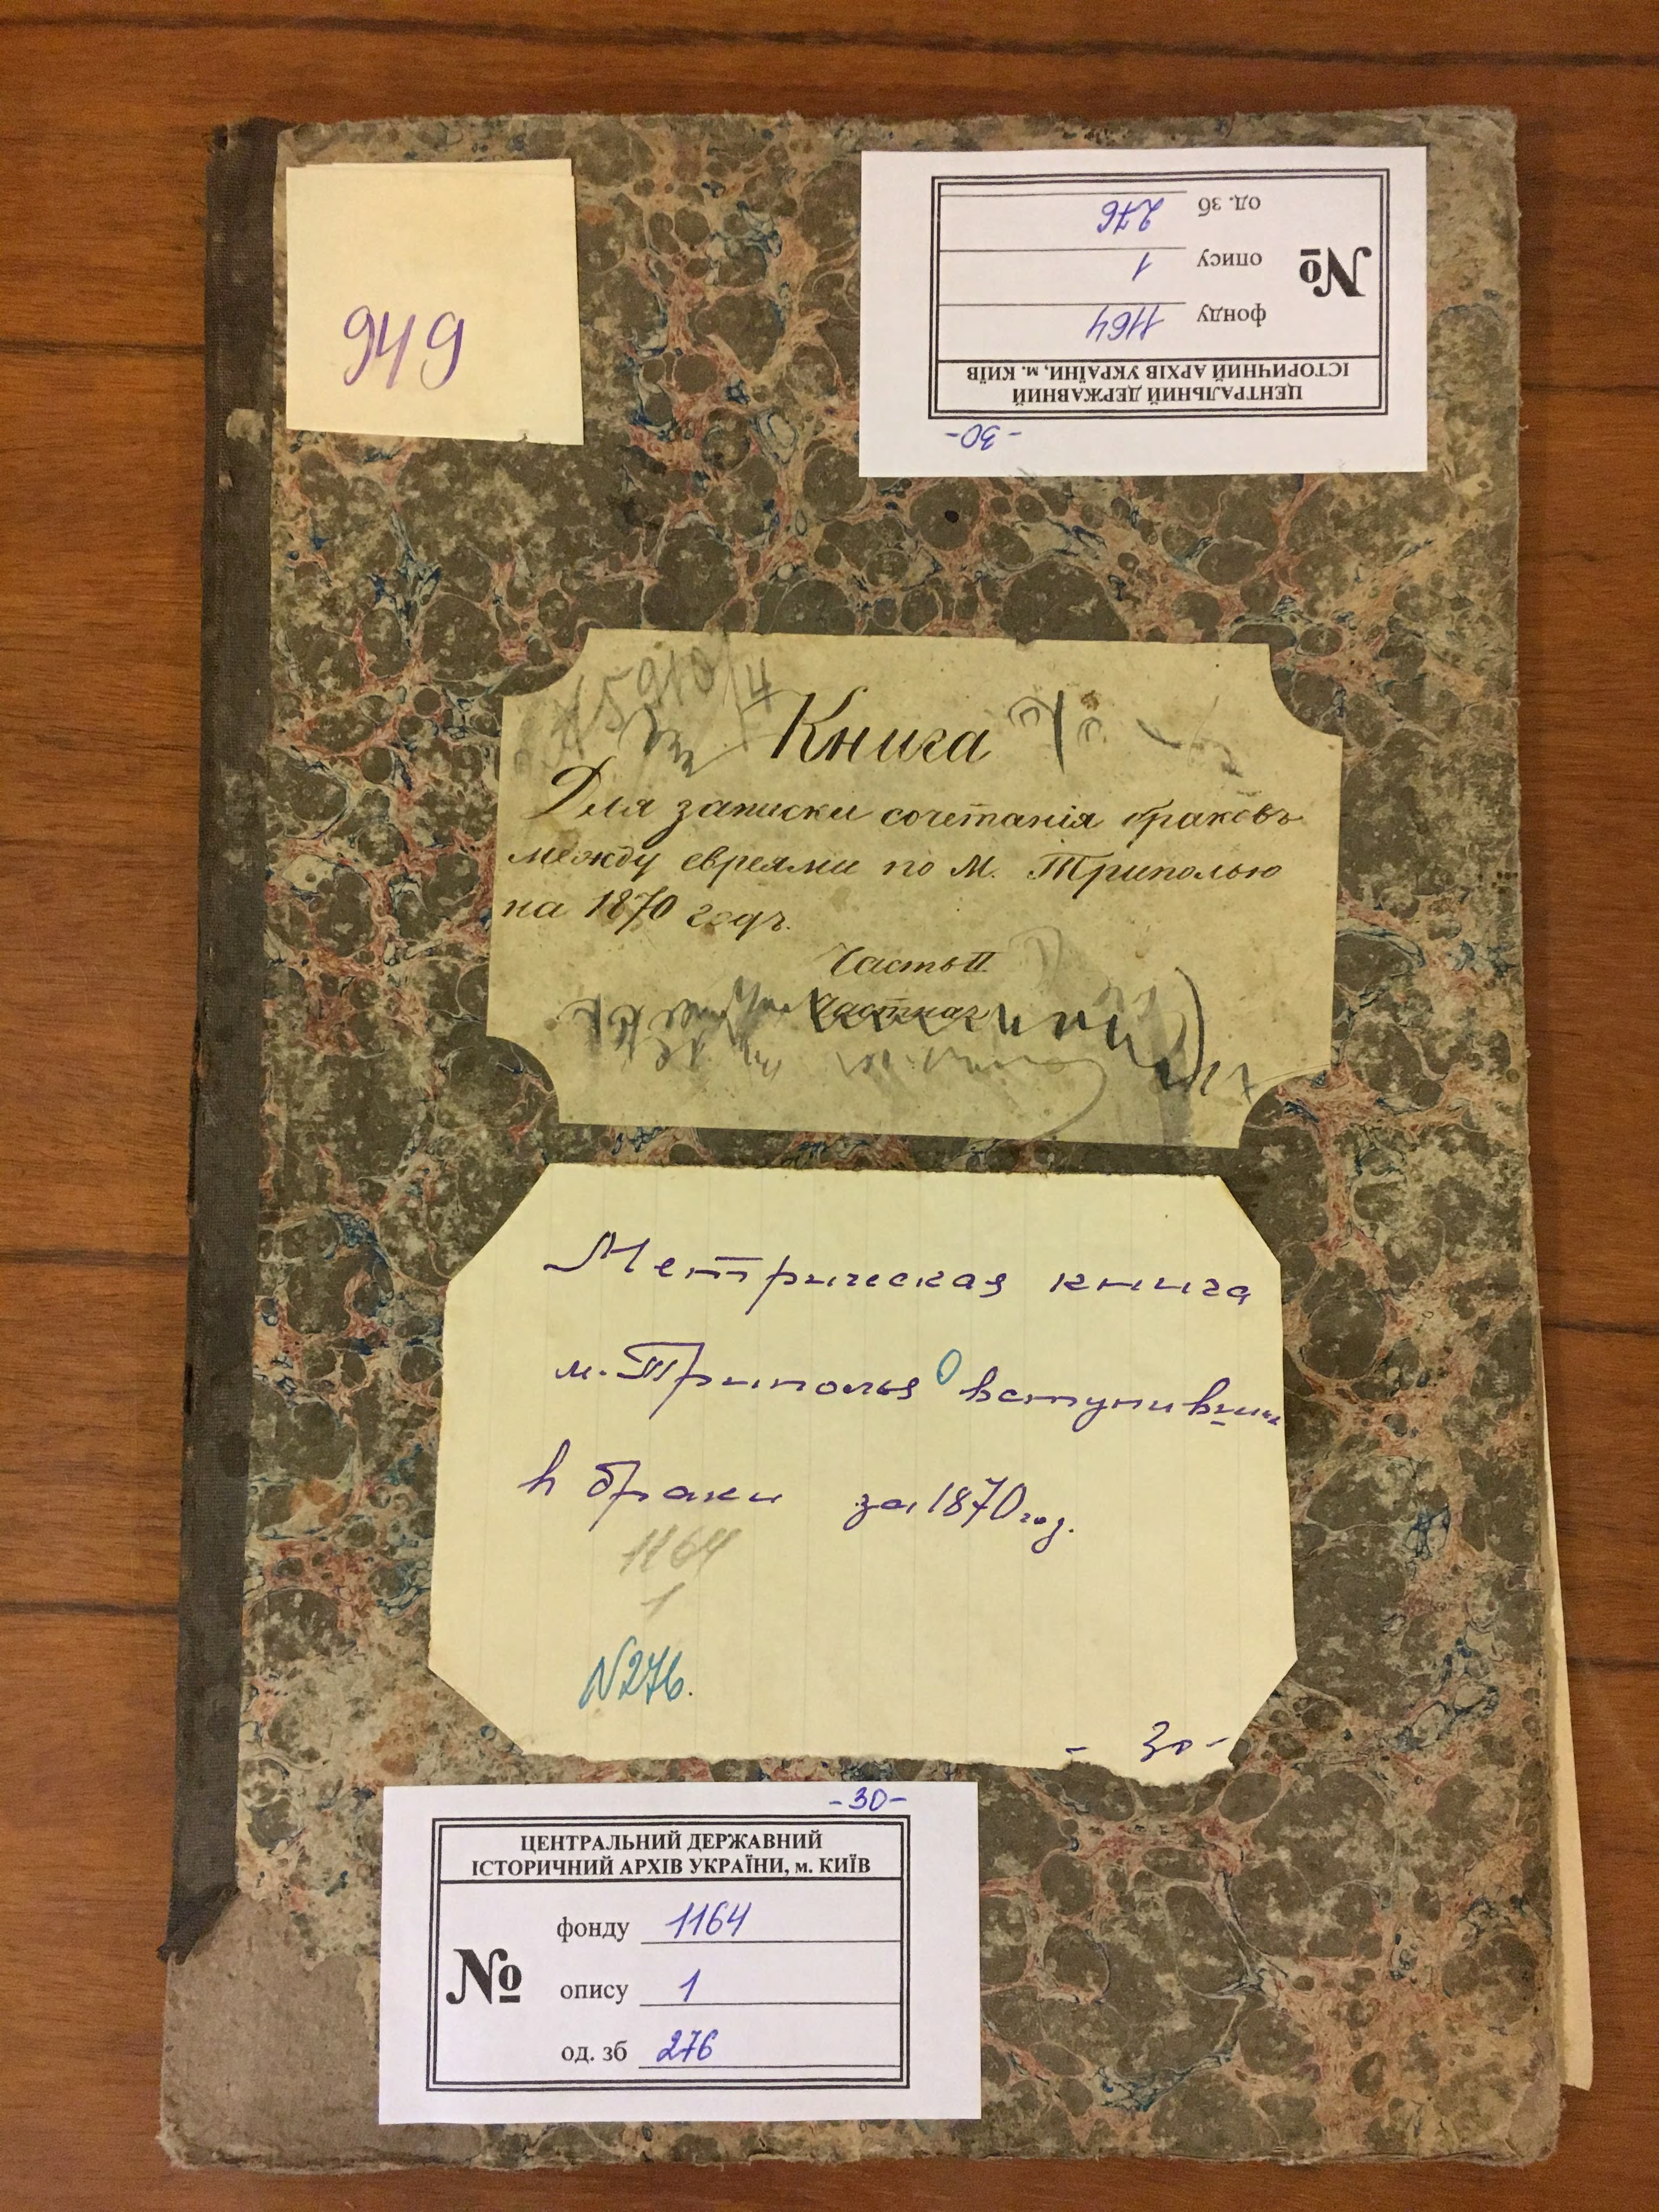 949
ЦЕНТРАЛЬНИЙ ДЕРЖАВНИЙ
ІСТОРИЧНИЙ АРХІВ УКРАЇНИ, м. КИЇВ
№
фонду 1164
опису 1
од. зб 276
-30-
Книга
Для записки сочетанія браковъ
между евреями по М. Триполью
на 1870 годъ.
Часть II
Метрическая книга
м. Триполья о вступивших
в браки за 1870 год.
1164
1
N276.
- 30 -
-30-
ЦЕНТРАЛЬНИЙ ДЕРЖАВНИЙ
ІСТОРИЧНИЙ АРХІВ УКРАЇНИ, м. КИЇВ
№
фонду 1164
опису 1
од. зб 276